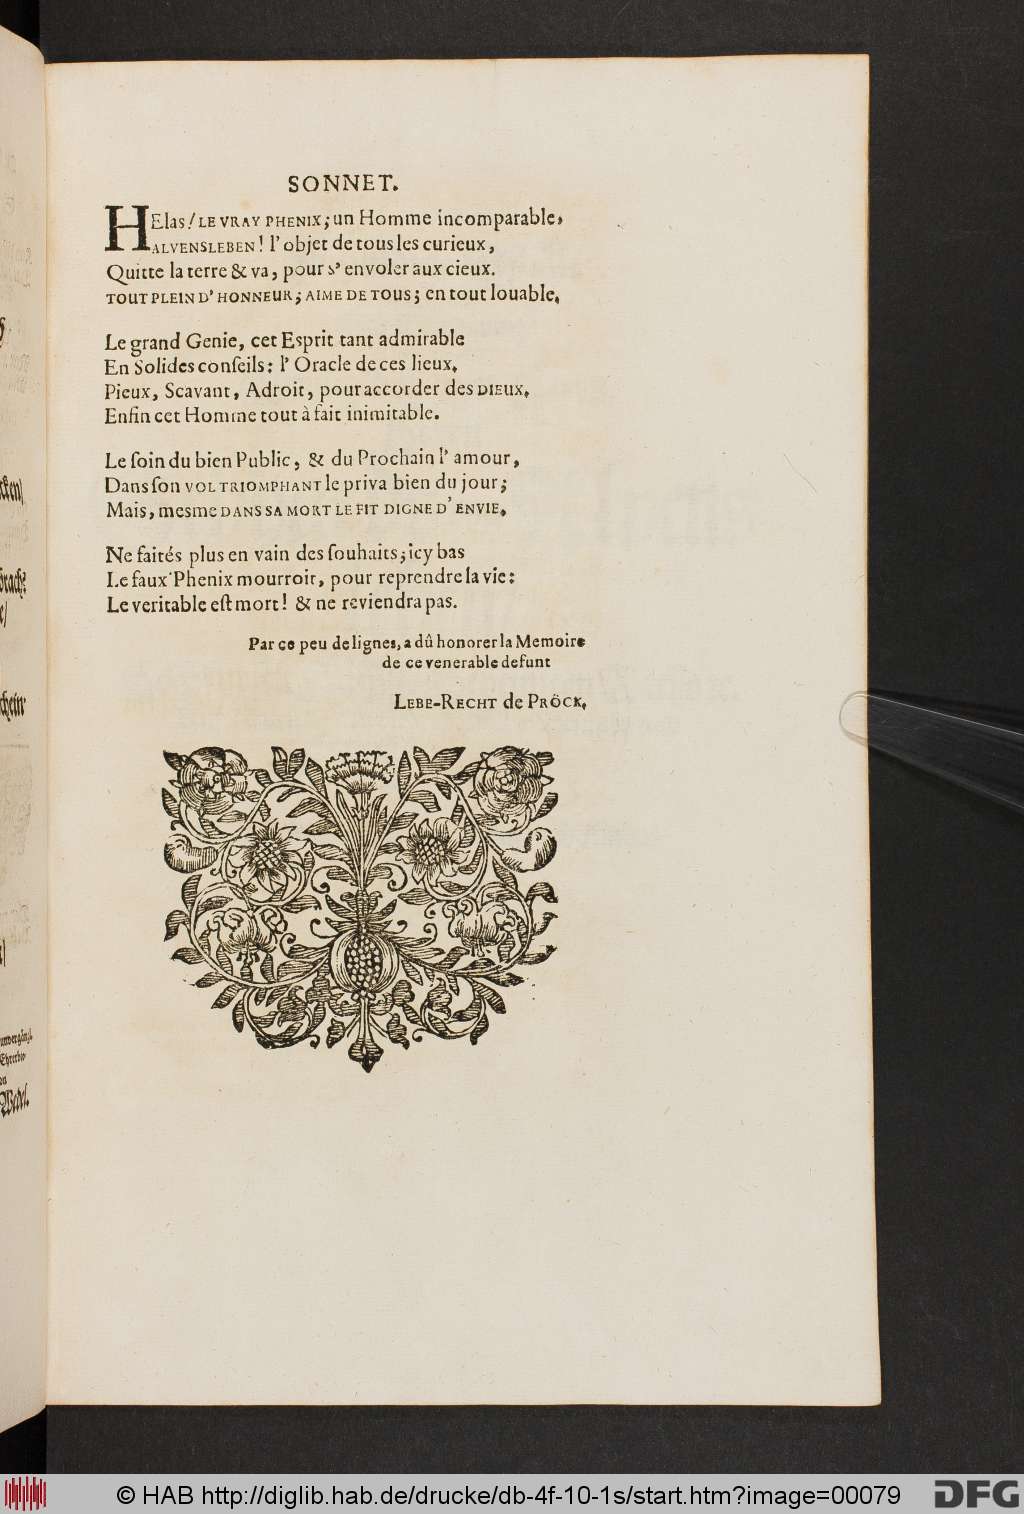 SONNET.
HElas! LE VRAY PHENIX; un Homme incomparable,
ALVENSLEBEN! l'objet de tous les curieux,
Quitte la terre & va, pour s'envoler aux cieux.
TOUT PLEIN D'HONNEUR; AIME DE TOUS; en tout louable,
Le grand Genie, cet Esprit tant admirable
En Solides conſeils: l'Oracle de ces lieux,
Pieux, Scavant, Adroit, pour accorder des DIEUX,
Enfin cet Homme tout à fait inimitable.
Le ſoin du bien Public, & du Prochain l'amour,
Dans ſon VOL TRIOMPHANT le priva bien du jour;
Mais, mesme DANS SA MORT LE FIT DIGNE D'ENVIE,
Ne faités plus en vain des ſouhaits; icy bas
Le faux Phenix mourroit, pour reprendre la vie:
Le veritable eſt mort! & ne reviendra pas.
Par ce peu de lignes, a dû honorer la Memoire
de ce venerable defunt
LEBE-RECHT de PRÖCK,
cken/
brach?
e/
ſchein
Wedel.
© HAB http://diglib.hab.de/drucke/db-4f-10-1s/start.htm?image=00079
DFG